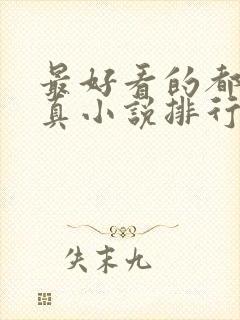 最好看的都
真小说排行
失末九